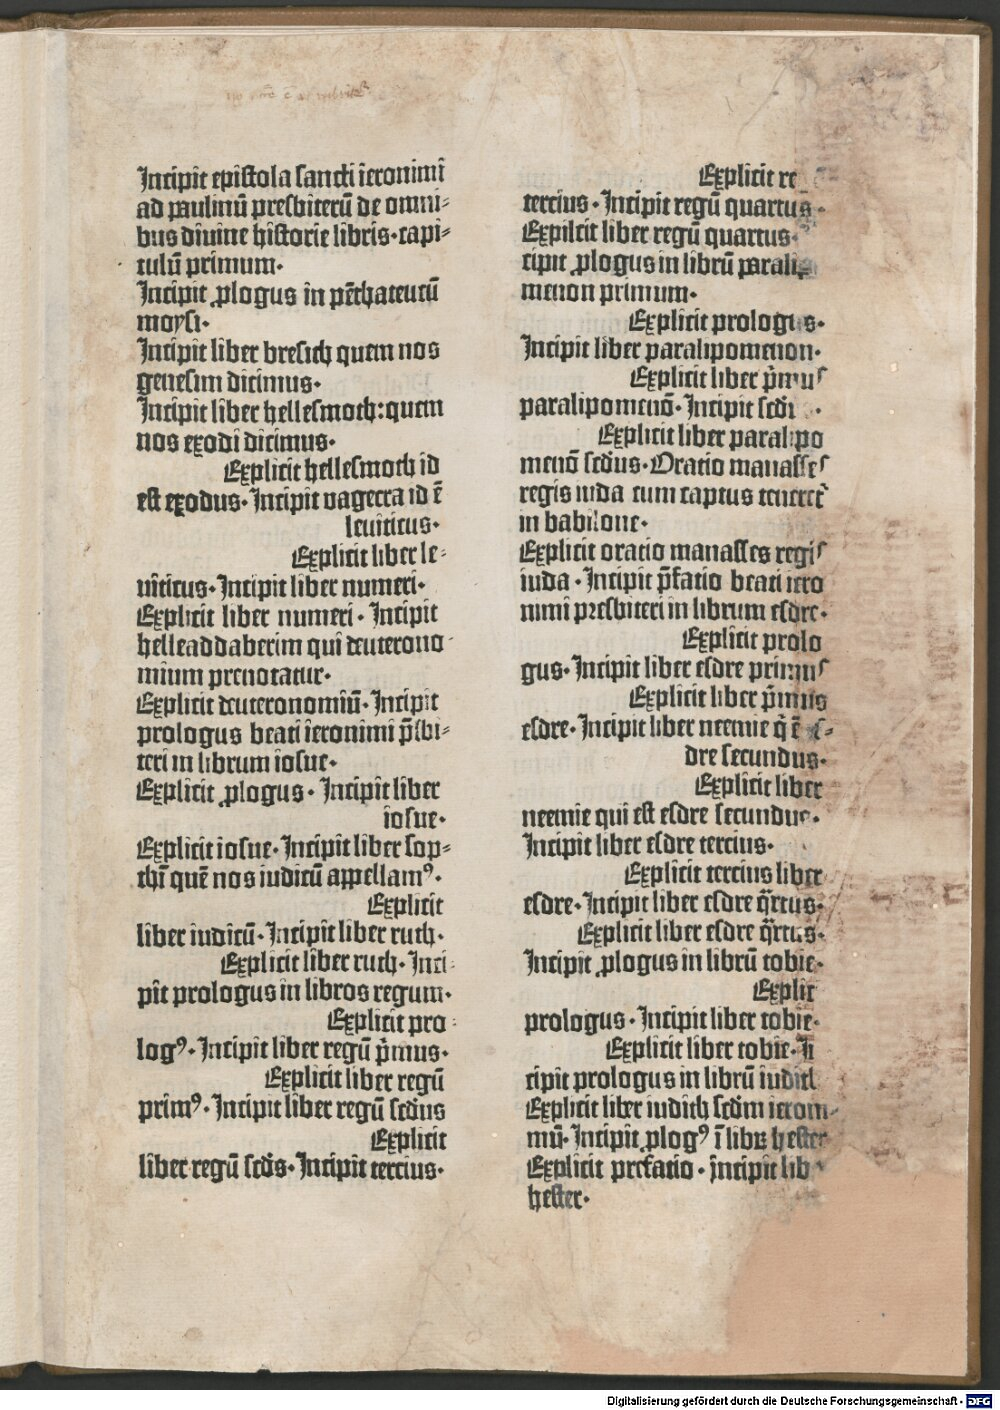 Incipit epistola sancti ieronimi
ad paulinū presbiterū de omni-
bus diuine historie libris· capi-
tulū primum·
Incipit ꝓlogus in pēthateucū
moysi·
Incipit liber bresich quem nos
genesim dicimus·
Incipit liber hellesmoth: quem
nos exodi dicimus·
Explicit hellesmoth id
est exodus· Incipit vagecra id ē
leuiticus·
Explicit liber le-
uiticus· Incipit liber numeri·
Explicit liber numeri· Incipit
helleaddaberim qui deuterono-
mium prenotatur·
Explicit deuteronomiū· Incipit
prologus beati ieronimi p̄sbi-
teri in librum iosue·
Explicit ꝓlogus· Incipit liber
iosue·
Explicit iosue· Incipit liber sop-
thī quē nos iudicū appellamꝰ·
Explicit
liber iudicū· Incipit liber ruth·
Explicit liber ruth· Inci-
pit prologus in libros regum·
Explicit pro-
logꝰ· Incipit liber regū p̄mus·
Explicit liber regū
primꝰ· Incipit liber regū scd̄us
Explicit
liber regū scd̄s· Incipit tercius·
Explicit
tercius· Incipit regū quartus·
Expilcit liber regū quartus·
cipit ꝓlogus in librū paralip
menon primum·
Explicit prologus·
Incipit liber paralipomenon·
Explicit liber p̄mus
paralipomenō· Incipit
Explicit liber paralipo
menō scd̄us· Oratio manasses
regis iuda cum captus teneret̄
in babilone·
Explicit oratio manasses regis
iuda· Incipit p̄fatio beati iero
nimi presbiteri in librum esdre·
Explicit prolo
gus· Incipit liber esdre primus
Explicit liber p̄mus
esdre· Incipit liber neemie q̄ ē es-
dre secundus·
Explicit liber
neemie qui est esdre secundus·
Incipit liber esdre tercius·
Explicit tercius liber
esdre· Incipit liber esdre q̄rtus·
Explicit liber esdre q̄rtus·
Incipit ꝓlogus in librū tobie·
Explit
prologus· Incipit liber tobie·
Explicit liber tobie· In
cipit prologus in librū iudith
Explicit liber iudith scd̄m ieroni-
mū· Incipit ꝓlogꝰ ī librꝫ hester
Explicit prefatio· incipit lib
hester·
Digitalisierung gefördert durch die Deutsche Forschungsgemeinschaft - DFG